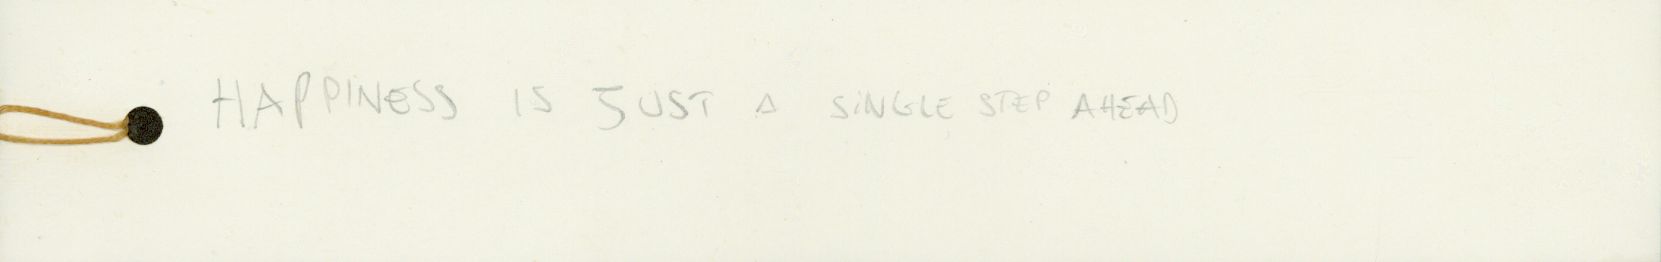 HAPPINESS IS JUST A SINGLE STEP AHEAD